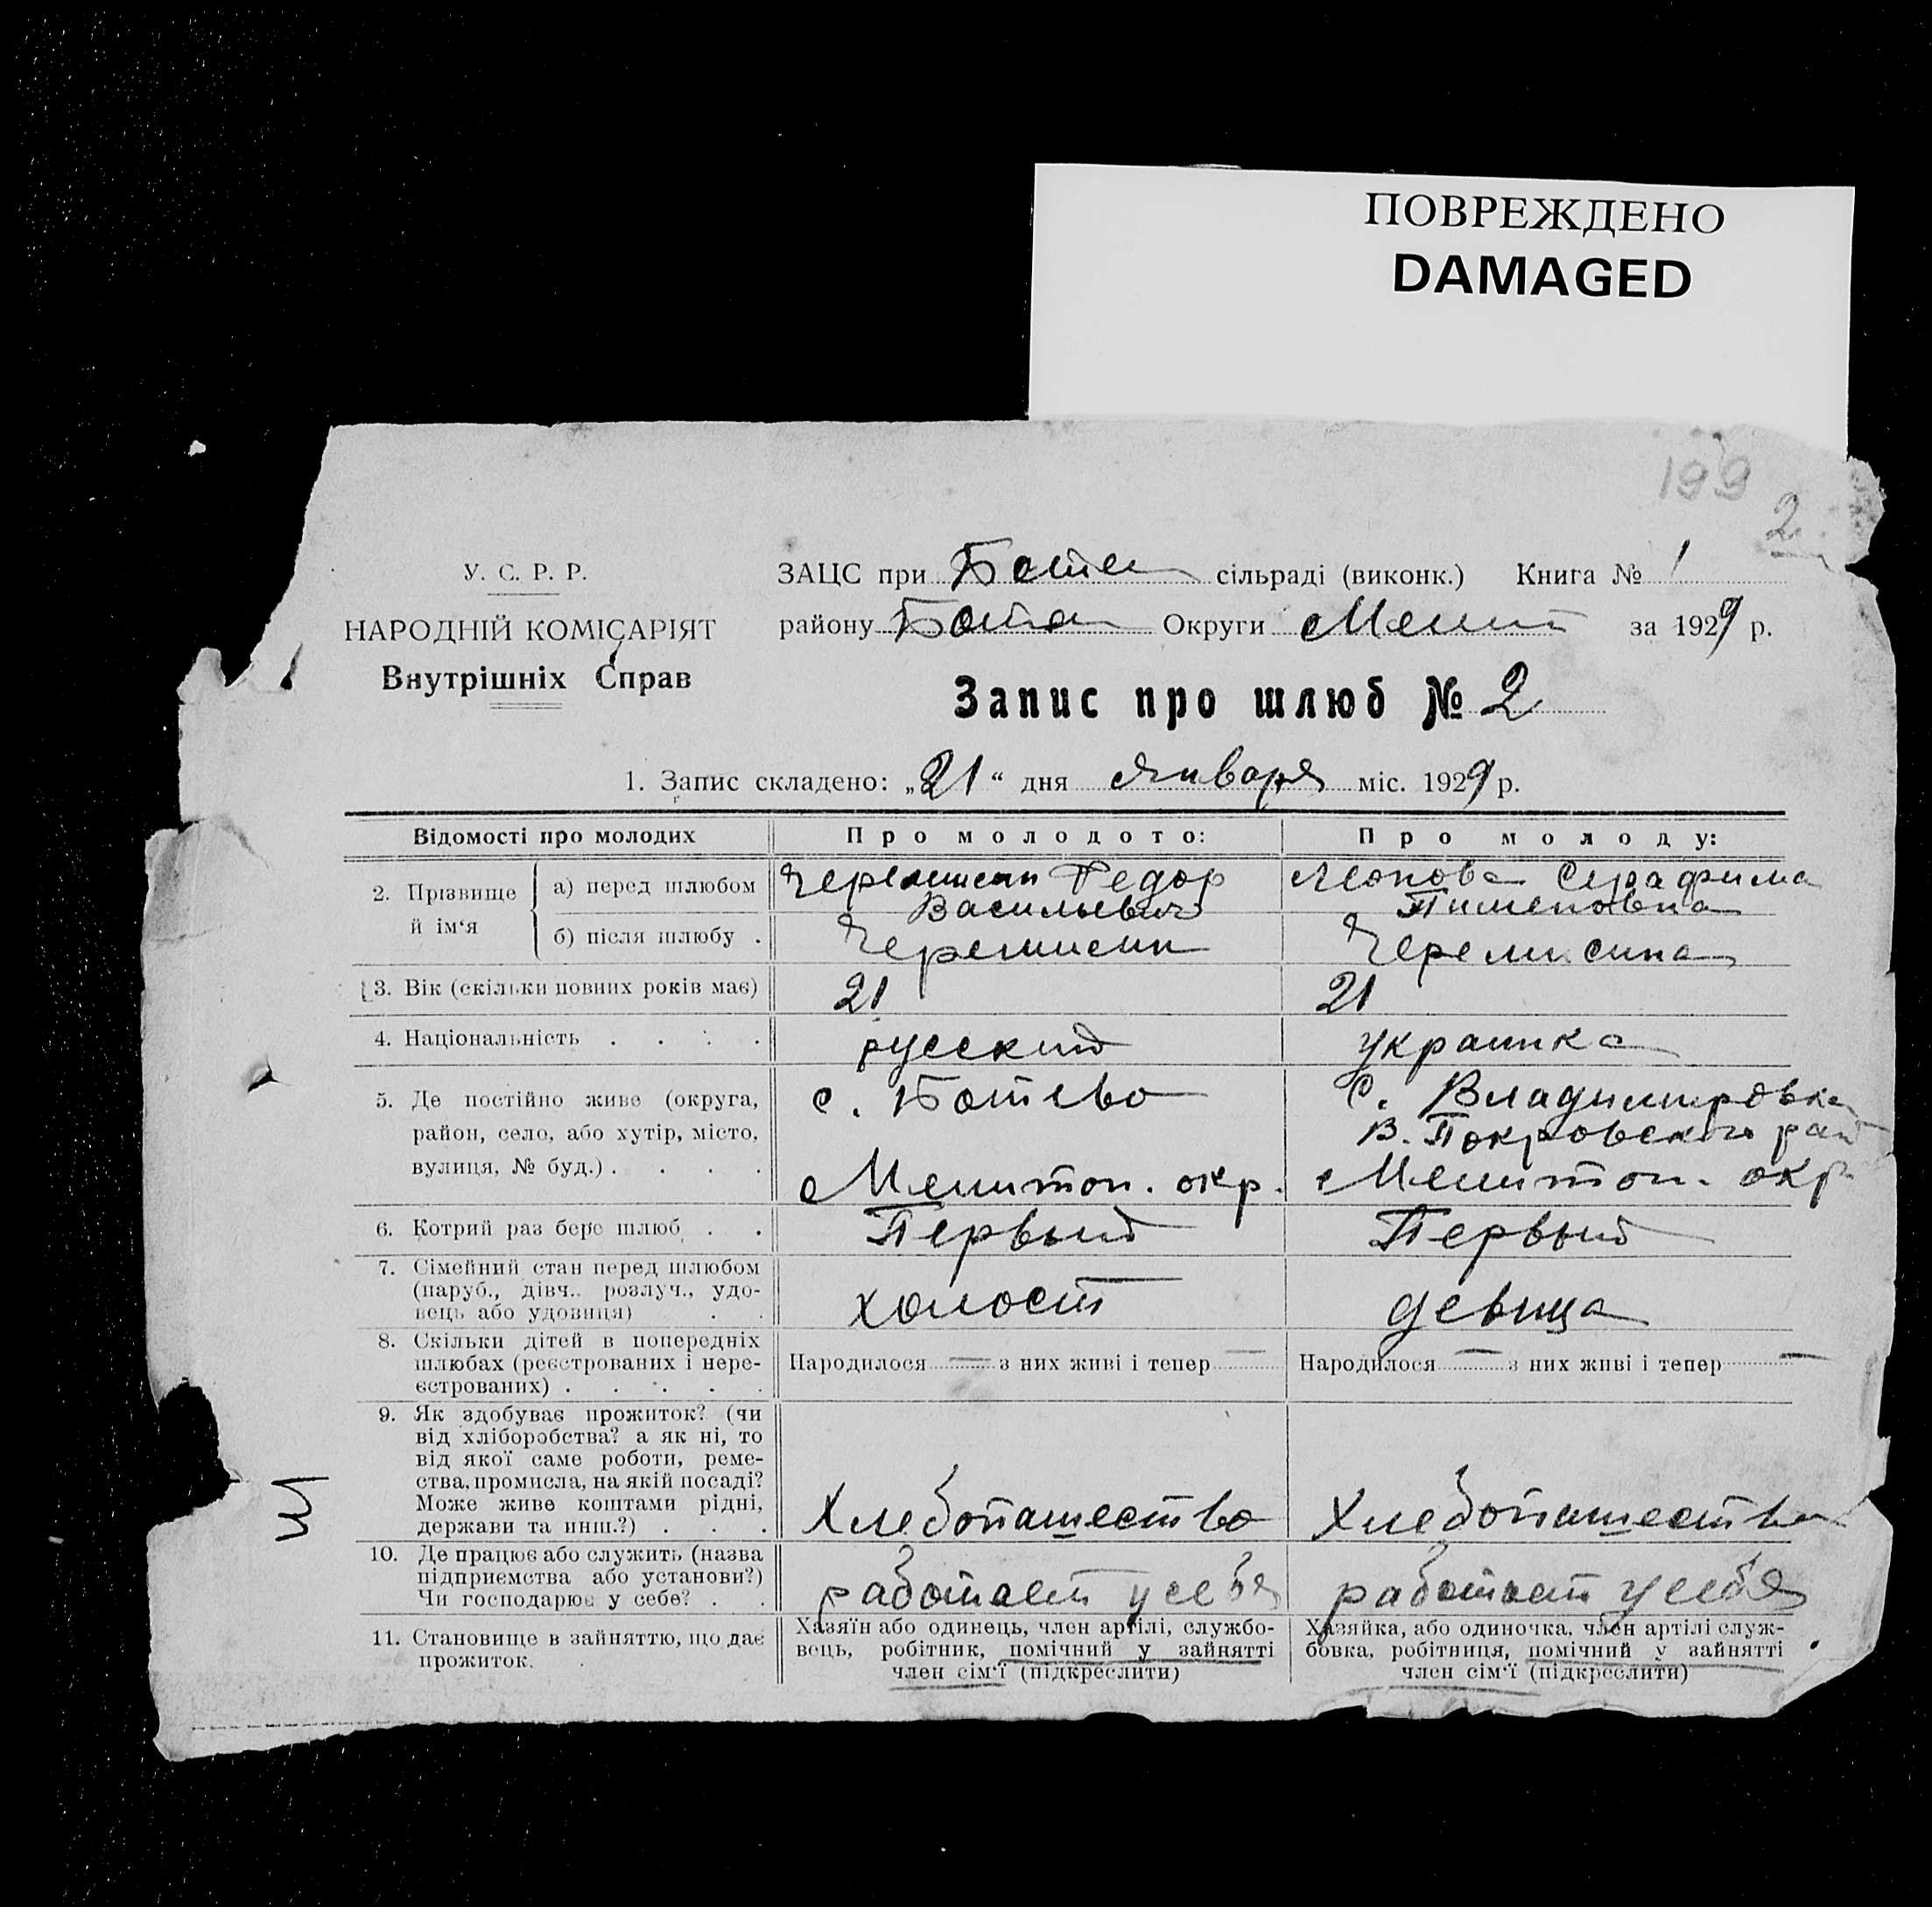 ПОВРЕЖДЕНО
DAMAGED
199
2
У. С. Р. Р.
НАРОДНІЙ КОМІСАРІЯТ
Внутрішніх Справ
ЗАЦС при Ботев сільраді (виконк.) Книга № 1
району Ботев Округи Мелит за 1929 р.
Запис про шлюб № 2
1. Запис складено: „21“ дня Января міс. 1929 р.
Відомості про молодих
Про молодого:
Про молоду:
2. Прізвище й ім‘я
а) перед шлюбом
Черемисин Федор
Васильевич
Серафима
Пименовна
б) після шлюбу .
Черемисин
Черемисина
3. Вік (скільки повних років має)
21
21
4. Національність . . . .
русский
украинка
5. Де постійно живе (округа,
район, село, або хутір, місто,
вулиця, № буд.) . . . .
с. Ботево
Мелитоп. окр.
с. Владимировка
В. Покровского рай
Мелитоп. окр.
6. Котрий раз бере шлюб . .
Первый
Первый
7. Сімейний стан перед шлюбом
(паруб., дівч., розлуч., удо-
вець або удовиця) . .
холост
девица
8. Скільки дітей в попередніх
шлюбах (реєстрованих і нере-
єстрованих) . . . . .
Народилося — з них живі і тепер —
Народилося — з них живі і тепер —
9. Як здобуває прожиток? (чи
від хліборобства? а як ні, то
від якої саме роботи, реме-
ства, промисла, на якій посаді?
Може живе коштами рідні,
держави та инш.?) . . .
Хлебопашество
Хлебопашество
10. Де працює або служить (назва
підприємства або установи?)
Чи господарює у себе? . .
работает у себя
работает у себя
11. Становище в зайняттю, що дає
прожиток.
Хазяїн або одинець, член артілі, службо-
вець, робітник, помічний у зайнятті
член сім‘ї (підкреслити)
Хазяйка, або одиночка, член артілі служ-
бовка, робітниця, помічний у зайнятті
член сім‘ї (підкреслити)